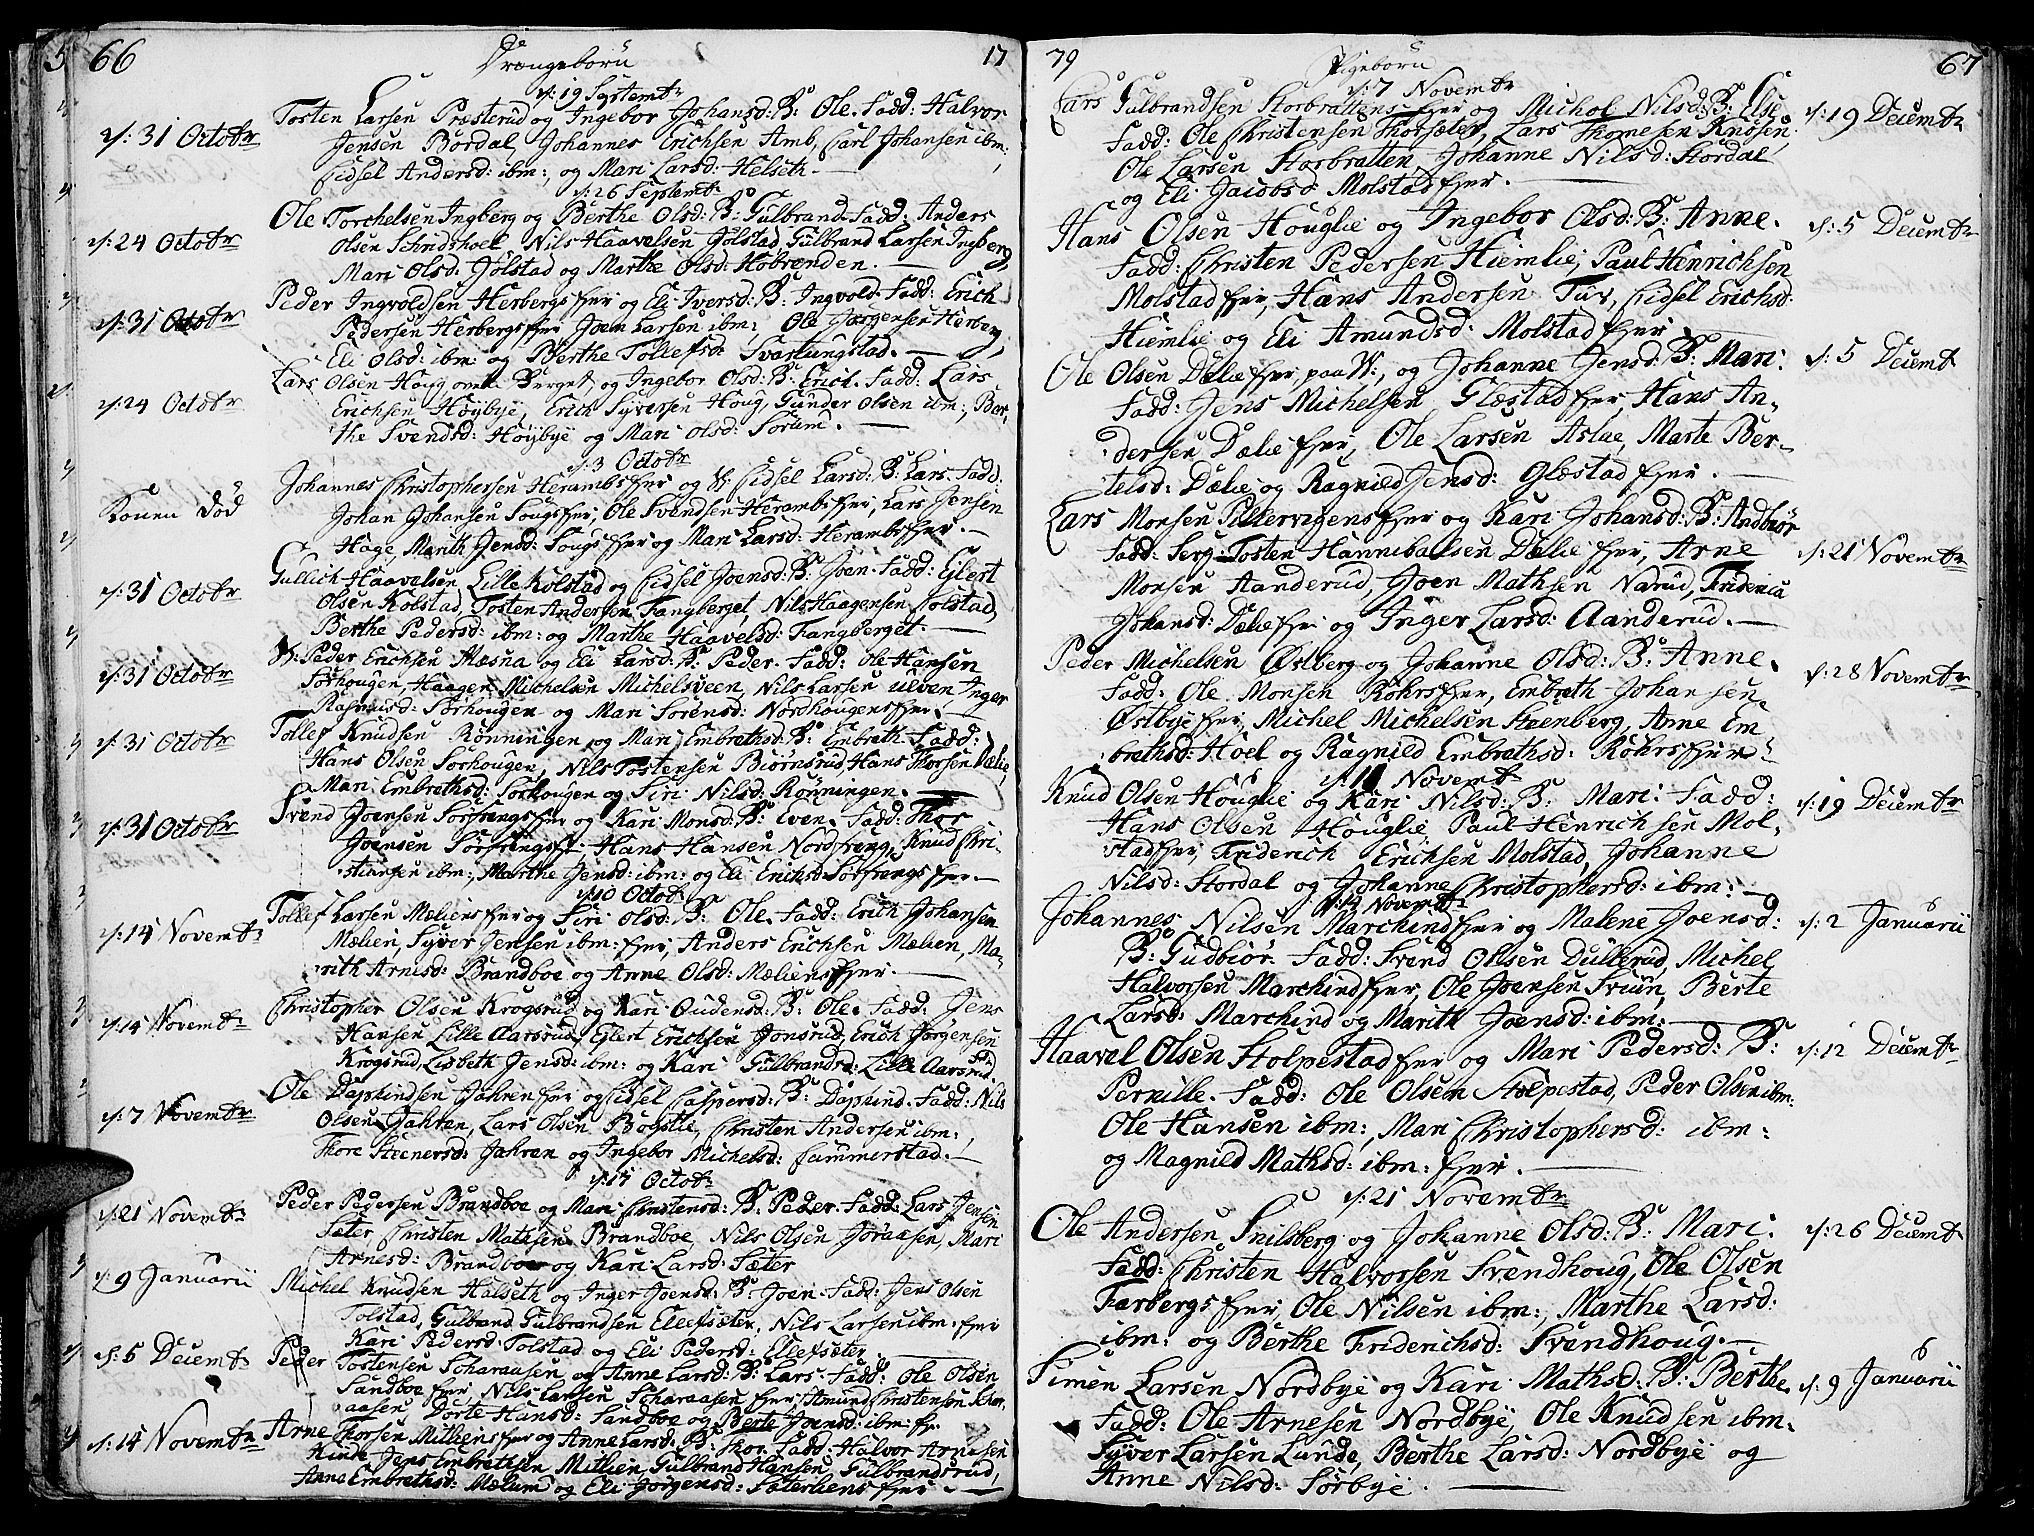 66 Drængebörn 17
d: 19 Septembr
Tosten Larsen Præsterud og Ingebor Johansd: B: Ole. Fadd: Halvor
d: 31 Octobr Jensen Bordal, Johannes Erichsen Amb, Carl Johansen ibm:,
Cidsel Andersd: ibm:, og Mari Larsd: Helseth.
d: 26 Septembr
Ole Torchelsen Ingberg og Berthe Olsd: B: Gulbrand. Fadd: Anders
d: 24 Octobr Olsen Nils Haavelsen Jølstad, Gulbrand Larsen Ingberg,
Mari Olsd: Jølstad og Marthe Olsd: Høbrenden.
Peder Ingvoldsen Herbergs Eyer og Eli Iversd: B: Ingvold. Fadd: Erich
d: 31 Octobr Pedersen Herbergs Eyer Joen Larsen ibm:, Ole Jørgensen Herberg,
Eli Olsd: ibm: og Berthe Tollefsd: Svartungstad.
Lars Olsen Houg og Ingebor Olsd: B: Erich. Fadd: Lars
d: 24 Octobr Erichsen Høybye, Erich Syversen Houg, Gunder Olsen ibm:, Ber-
the Svendsd: Høybye og Mari Olsd: Sorum.
d: 3 Octobr
Johannes Christophersen Herambs Eyer og Cidsel Larsd: B: Lars. Fadd:
Konen død Johan Johansen Sougs Eyer, Ole Svendsen Herambs Eyer, Lars Jensen
Hage, Marith Jensd: Sougs Eyer og Mari Larsd: Herambs Eyer.
Gullich Haavelsen Lille Kolstad og Cidsel Joensd: B: Joen. Fadd: Eylert
d: 31 Octobr Olsen Kolstad, Tosten Andersen Fangberget, Nils Haagensen Tolstad,
Berthe Pedersd: ibm: og Marthe Haavelsd: Fangberget.
Peder Erichsen Mæsna og Eli Larsd: B: Peder. Fadd: Ole Hansen
d: 31 Octobr Sørhougen, Haagen Michelsen Michelsveen, Nils Larsen Ulven, Inger
Ragnild: Sørhougen og Mari Sørensd: Nordhougens Eyer.
Tollef Knudsen Rönningen og Mari Embrethsd: B: Embreth. Fadd:
d: 31 Octobr Hans Olsen Sörhougen, Nils Tostensen Biörnsrud, Hans Thorsen Dælie,
Mari Embrethsd: Sorhougen og Siri Nilsd: Rönningen.
Svend Joensen Sörfrengs Eyer og Kari Monsd: B: Even. Fadd: Thor
d: 31 Octobr Joensen Sörfrengs Eyer Hans Hansen Nordfreng, Knud Chri-
stiansen ibm:, Marthe Jensd: ibm: og Eli Erichsd: Sörfrengs Eyer.
d: 10 Octobr
Tollef Larsen Mæliens Eyer og Siri Olsd: B: Ole. Fadd: Erich Johansen
d: 14 Novembr Mælien, Syver Jensen ibm: Eyer, Anders Erichsen Mælien, Ma-
rith Arnesd: Brandboe og Anne Olsd: Mæliens Eyer.
Christopher Olsen Krogsrud og Kari Oudensd: B: Ole. Fadd: Jens
d: 14 Novembr Hansen Lille Aarsrud, Eylert Erichsen Jonsrud, Erich Jörgensen
Krogsrud, Lisbeth Jensd: ibm: og Kari Gulbrandsd: Lille Aarsrud.
Ole Dagfindsen Jahren Eyer og Cidsel Caspersd: B: Dagfind. Fadd: Nils
d: 7 Novembr Olsen Jahren, Lars Olsen Bögslie, Christen Andersen ibm:,
Thore Steenersd: Jahren og Ingebor Michelsd: Cummerstad.
d: 17 Octobr
Peder Pedersen Brandboe og Mari Christensd: B: Peder. Fadd: Lars Jensen
d: 21 Novembr Sæter, Christen Mathsen Brandboe, Nils Olsen Joraasen, Mari
Arnesd: Brandboe og Kari Larsd: Sæter
d: 9 Januarii Michel Knudsen Halseth og Inger Joensd: B: Joen. Fadd: Jens Olsen
Tolstad, Gulbrand Gulbrandsen Ellefsæter, Nils Larsen ibm: Eyer
Kari Pedersd: Tolstad og Eli Pedersd: Ellefsæter.
d: 5 Decembr Peder Tostensen Scharaasen og Anne Larsd: B: Lars. Fadd: Ole Olsen
Sandboe Eyer, Nils Larsen Scharaasen Eyer, Amund Christensen Schar-
aasen Dorte Hansd: Sandboe og Berte Joensd: ibm:
d: 14 Novembr Arne Thorsen Mithiens Eyer og Anne Larsd: B: Thor. Fadd: Halvor Arnesen
Kinde, Jens Embrethsen Mithien, Gulbrand Hansen Gulbrandsrud,
Anne Embrethsd: Mælum og Eli Jörgensd: Sæterliens Eyer.
79 Pigebörn 67
d: 7 Novembr
Lars Gulbrandsen Storbrattens Eyer og Michol Nilsd: B: Else. d: 19 Decembr
Fadd: Ole Christensen Thorsæter, Lars Thomesen Knosen,
Ole Larsen Storbratten, Johanne Nilsd: Stordal
og Eli Jacobsd: Molstad Eyer.
Hans Olsen Houglie og Ingebor Olsd: B: Anne. d: 5 Decembr
Fadd: Christen Pedersen Hiemlie, Paul Henrichsen
Molstad Eyer, Hans Andersen Tuv, Cidsel Erichsd:
Hiemlie og Eli Amundsd: Molstad Eyer
Ole Olsen Dælie Eyer, paa W:, og Johanne Jensd: B: Mari. d: 5 Decembr
Fadd: Jens Michelsen Glæstad Eyer, Hans An-
dersen Dælie Eyer, Ole Larsen Aslae, Marte Ber-
telsd: Dælie og Ragnild Jensd: Glæstad Eyer.
Lars Monsen Pillervigens Eyer og Kari Johansd: B: Andbiör
Fadd: Serg: Tosten Hannibalsen Dælie Eyer, Arne d: 21 Novembr
Monsen Aanderud, Joen Mathsen Narud, Friderica
Johansd: Dælie Eyer og Inger Larsd: Aanderud.
Peder Michelsen Østberg og Johanne Olsd: B: Anne. d: 28 Novembr
Fadd: Ole Monsen Röhrs Eyer, Embreth Johansen
Østbye Eyer, Michel Michelsen Steenberg, Anne Em-
brethsd: Hoel og Ragnild Embrethsd: Röhrs Eyer
d: 11 Novembr
Knud Olsen Houglie og Kari Nilsd: B: Mari. Fadd: d: 19 Decembr
Hans Olsen Houglie, Paul Henrichsen Mol-
stad Eyer, Friderich Erichsen Molstad, Johanne
Nilsd: Stordal og Johanne Christophersd: ibm:
d: 14 Novembr
Johannes Nilsen Marchind Eyer og Malene Joensd: d: 2 Januarii
B: Gudbiör. Fadd: Svend Olsen Dullerud, Michel
Halvorsen Marchind Eyer, Ole Joensen Sviun, Berte
Larsd: Marchind og Marith Joensd: ibm:
Haavel Olsen Stolpestad Eyer og Mari Pedersd: B: d: 12 Decembr
Pernille. Fadd: Ole Olsen Stolpestad, Peder Olsen ibm:
Ole Hansen ibm:, Mari Christophersd: ibm:
og Magnild Mathsd: ibm: Eyer.
d: 21 Novembr
Ole Andersen Snilsberg og Johanne Olsd: B: Mari. d: 26 Decembr
Fadd: Christen Halvorsen Svendhoug, Ole Olsen
Farbergs Eyer, Ole Nilsen ibm:, Marthe Larsd:
ibm: og Berthe Friderichsd: Svendhoug.
Simen Larsen Nordbye og Kari Mathsd: B: Berthe. d: 9 Januarii
Fadd: Ole Arnesen Nordbye, Ole Knudsen ibm.
Syver Larsen Lunde, Berthe Larsd: Nordbye og
Anne Nilsd: Sörbye.